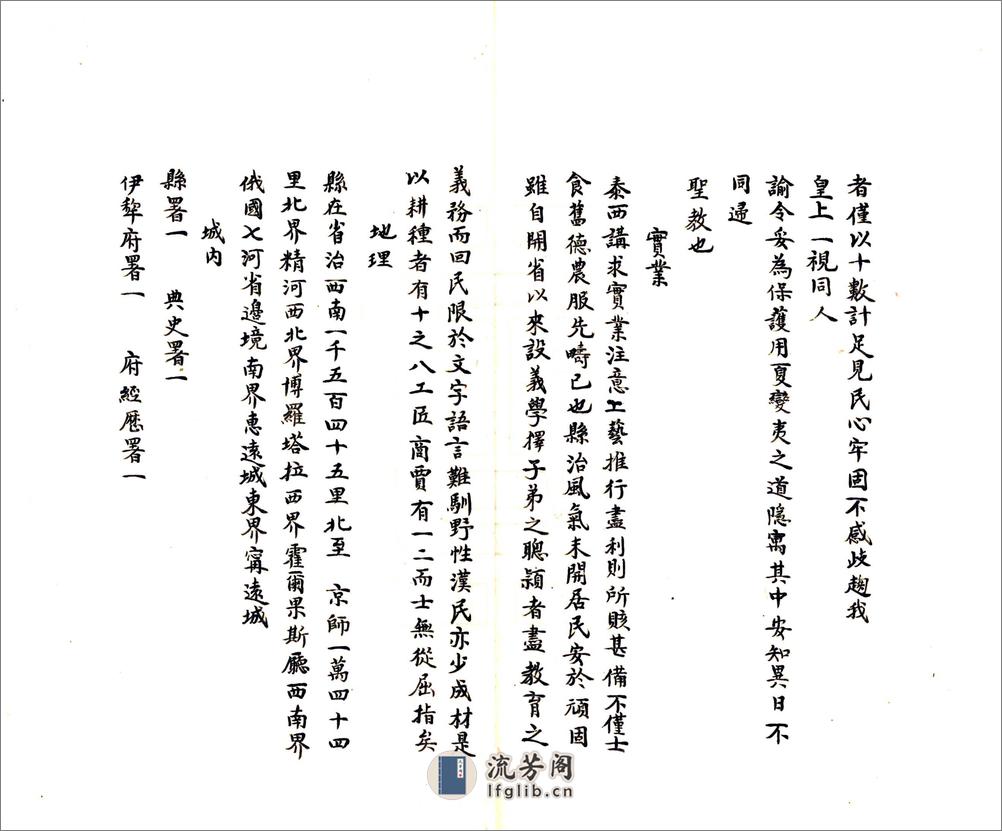 者僅以十數計足見民心牢固不惑歧趨我
皇上一視同人
諭令妥為保護用夏變夷之道隱寓其中安知異日不
同歸
聖教也
實業
泰西講求實業注意工藝推行盡利則所賅甚備不僅士
食舊德農服先疇已也縣治風氣未開居民安於頑固
雖自開省以來設義學擇子弟之聰穎者盡教育之
義務而回民限於文字語言難馴野性漢民亦少成材是
以耕種者有十之八工匠商賈有一二而士無從屈指矣
地理
縣在省治西南一千五百四十五里北至 京師一萬四十四
里北界精河西北界博羅塔拉西界霍爾果斯廳西南界
俄國七河省邊境南界惠遠城東界甯遠城
城內
縣署一 典史署一
伊犂府署一 府經歷署一
流芳阁
lfglib.cn